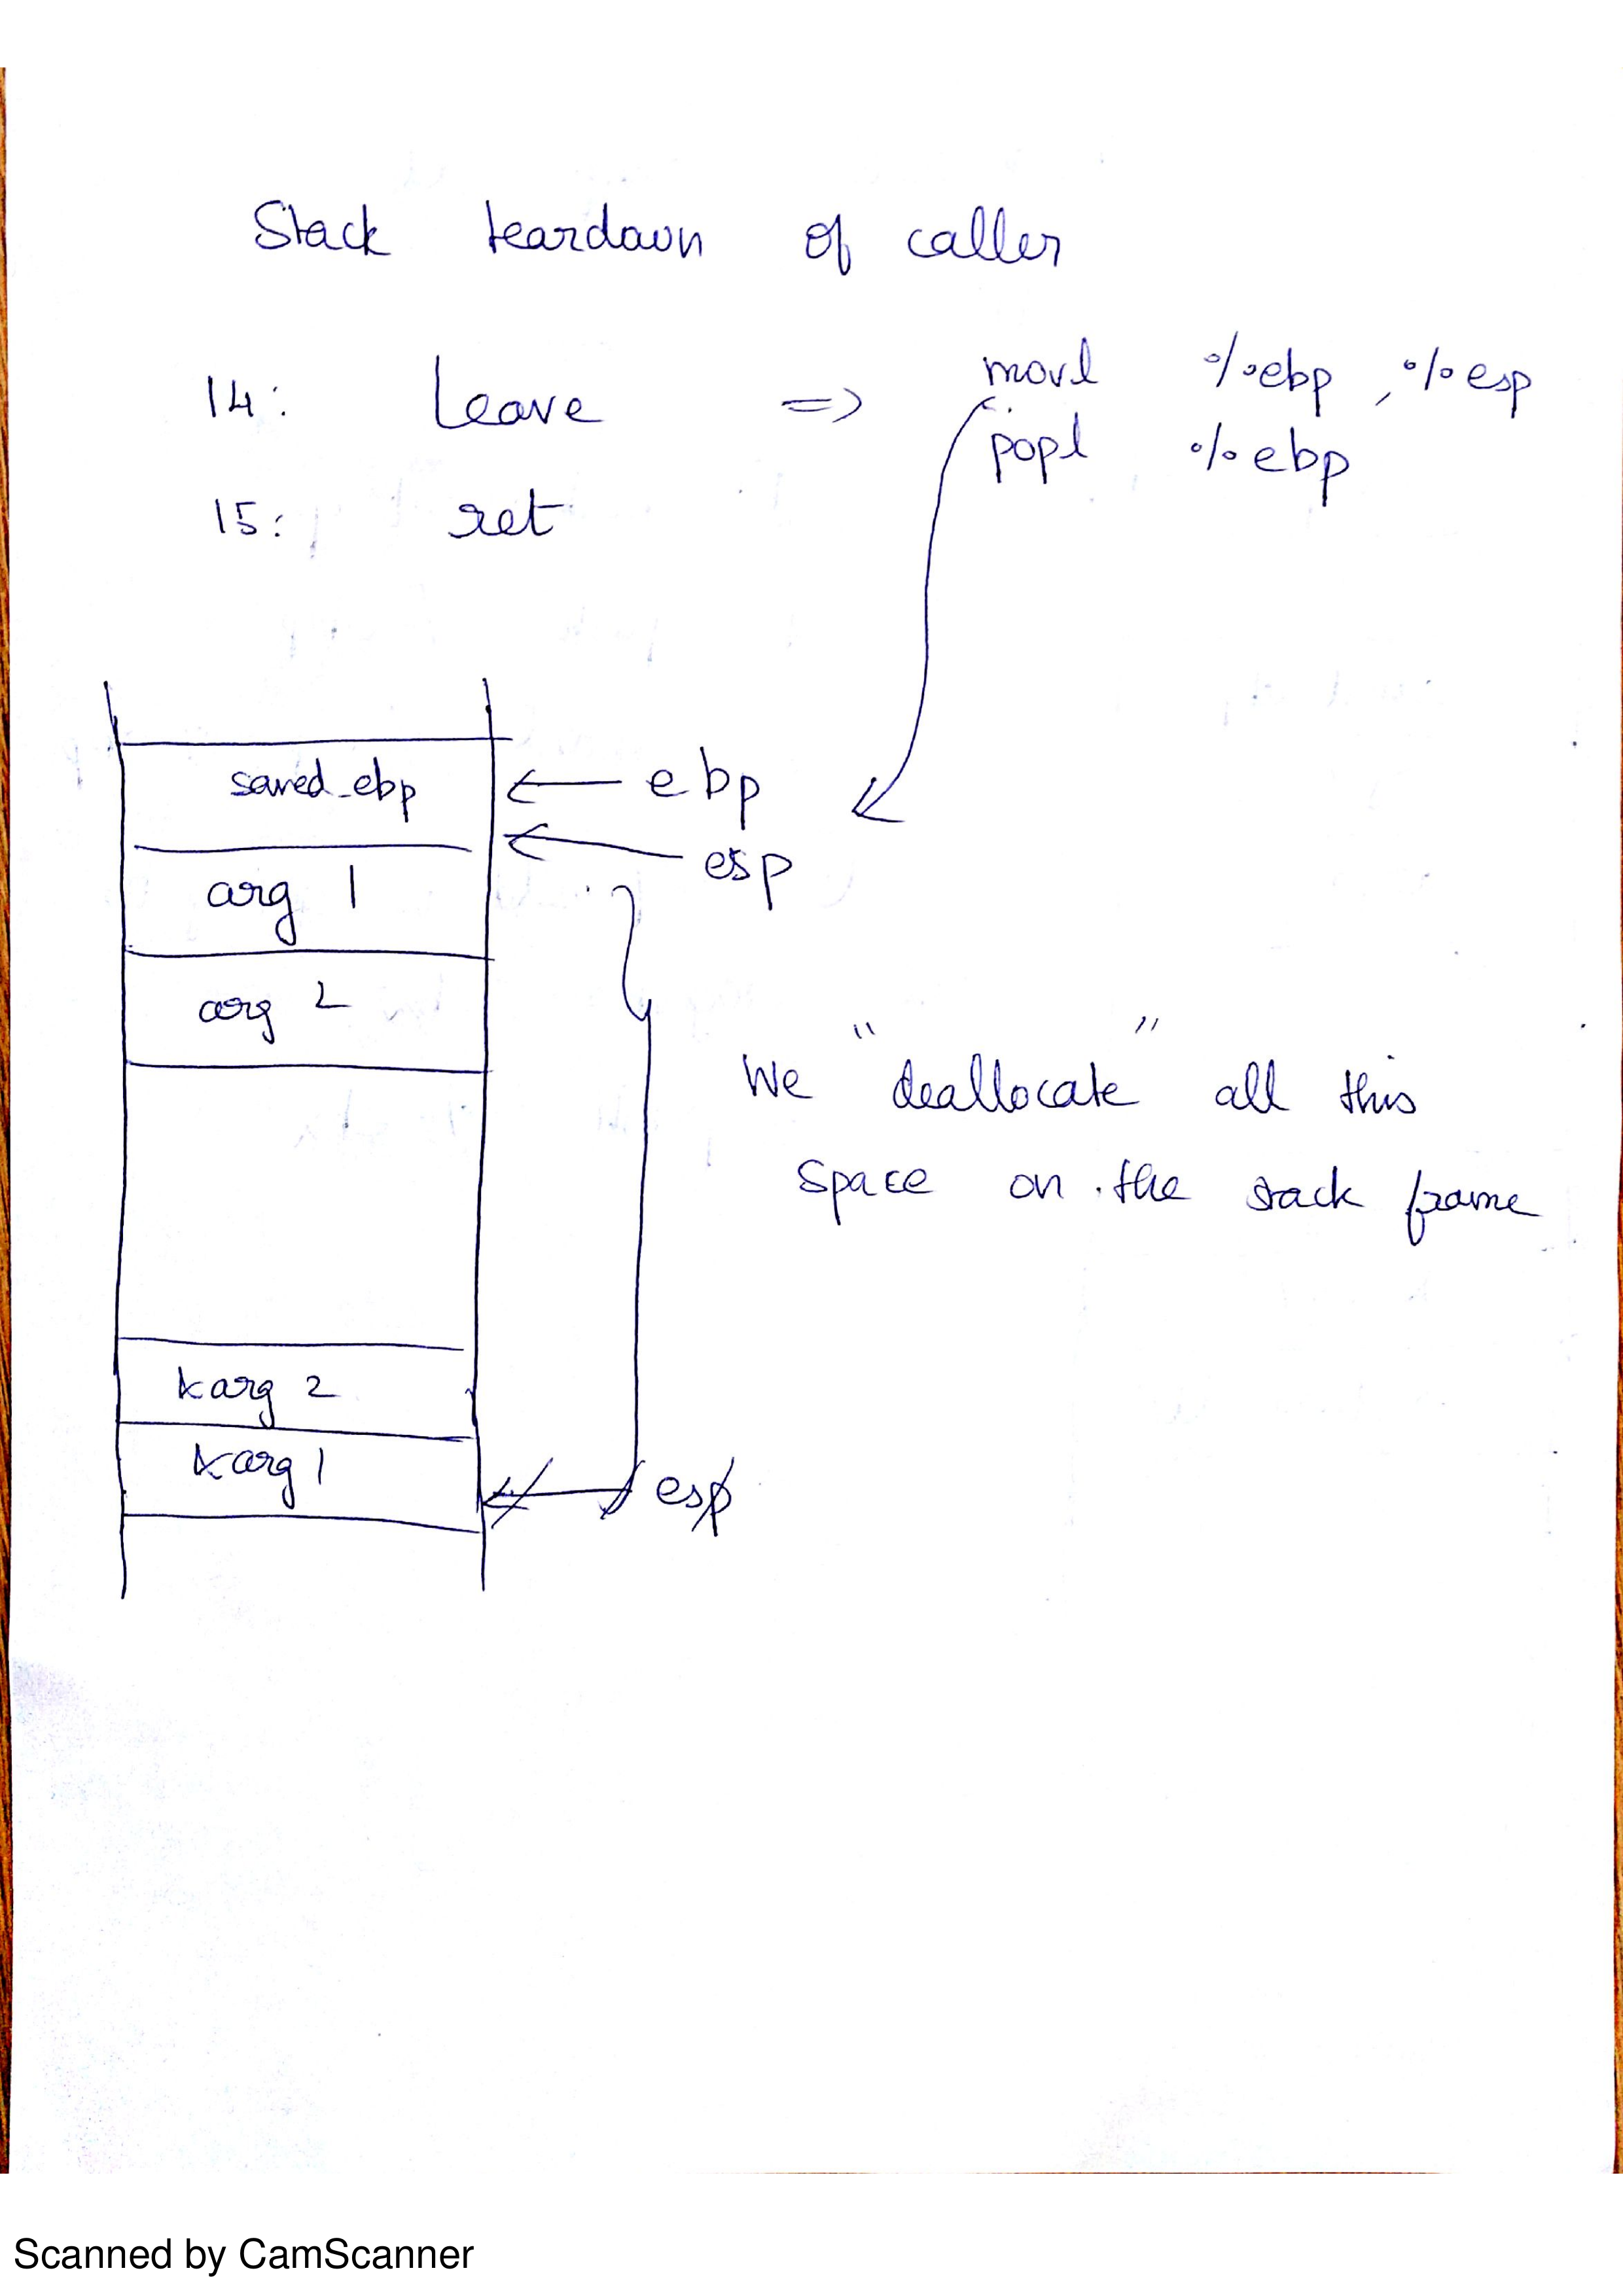 Stack teardown of caller
14: Leave => movl %ebp, %esp
popl %ebp
15: ret
saved_ebp ← ebp
← esp
arg 1
arg 2
We "deallocate" all this
space on the stack frame
&arg 2
&arg 1
esp
Scanned by CamScanner